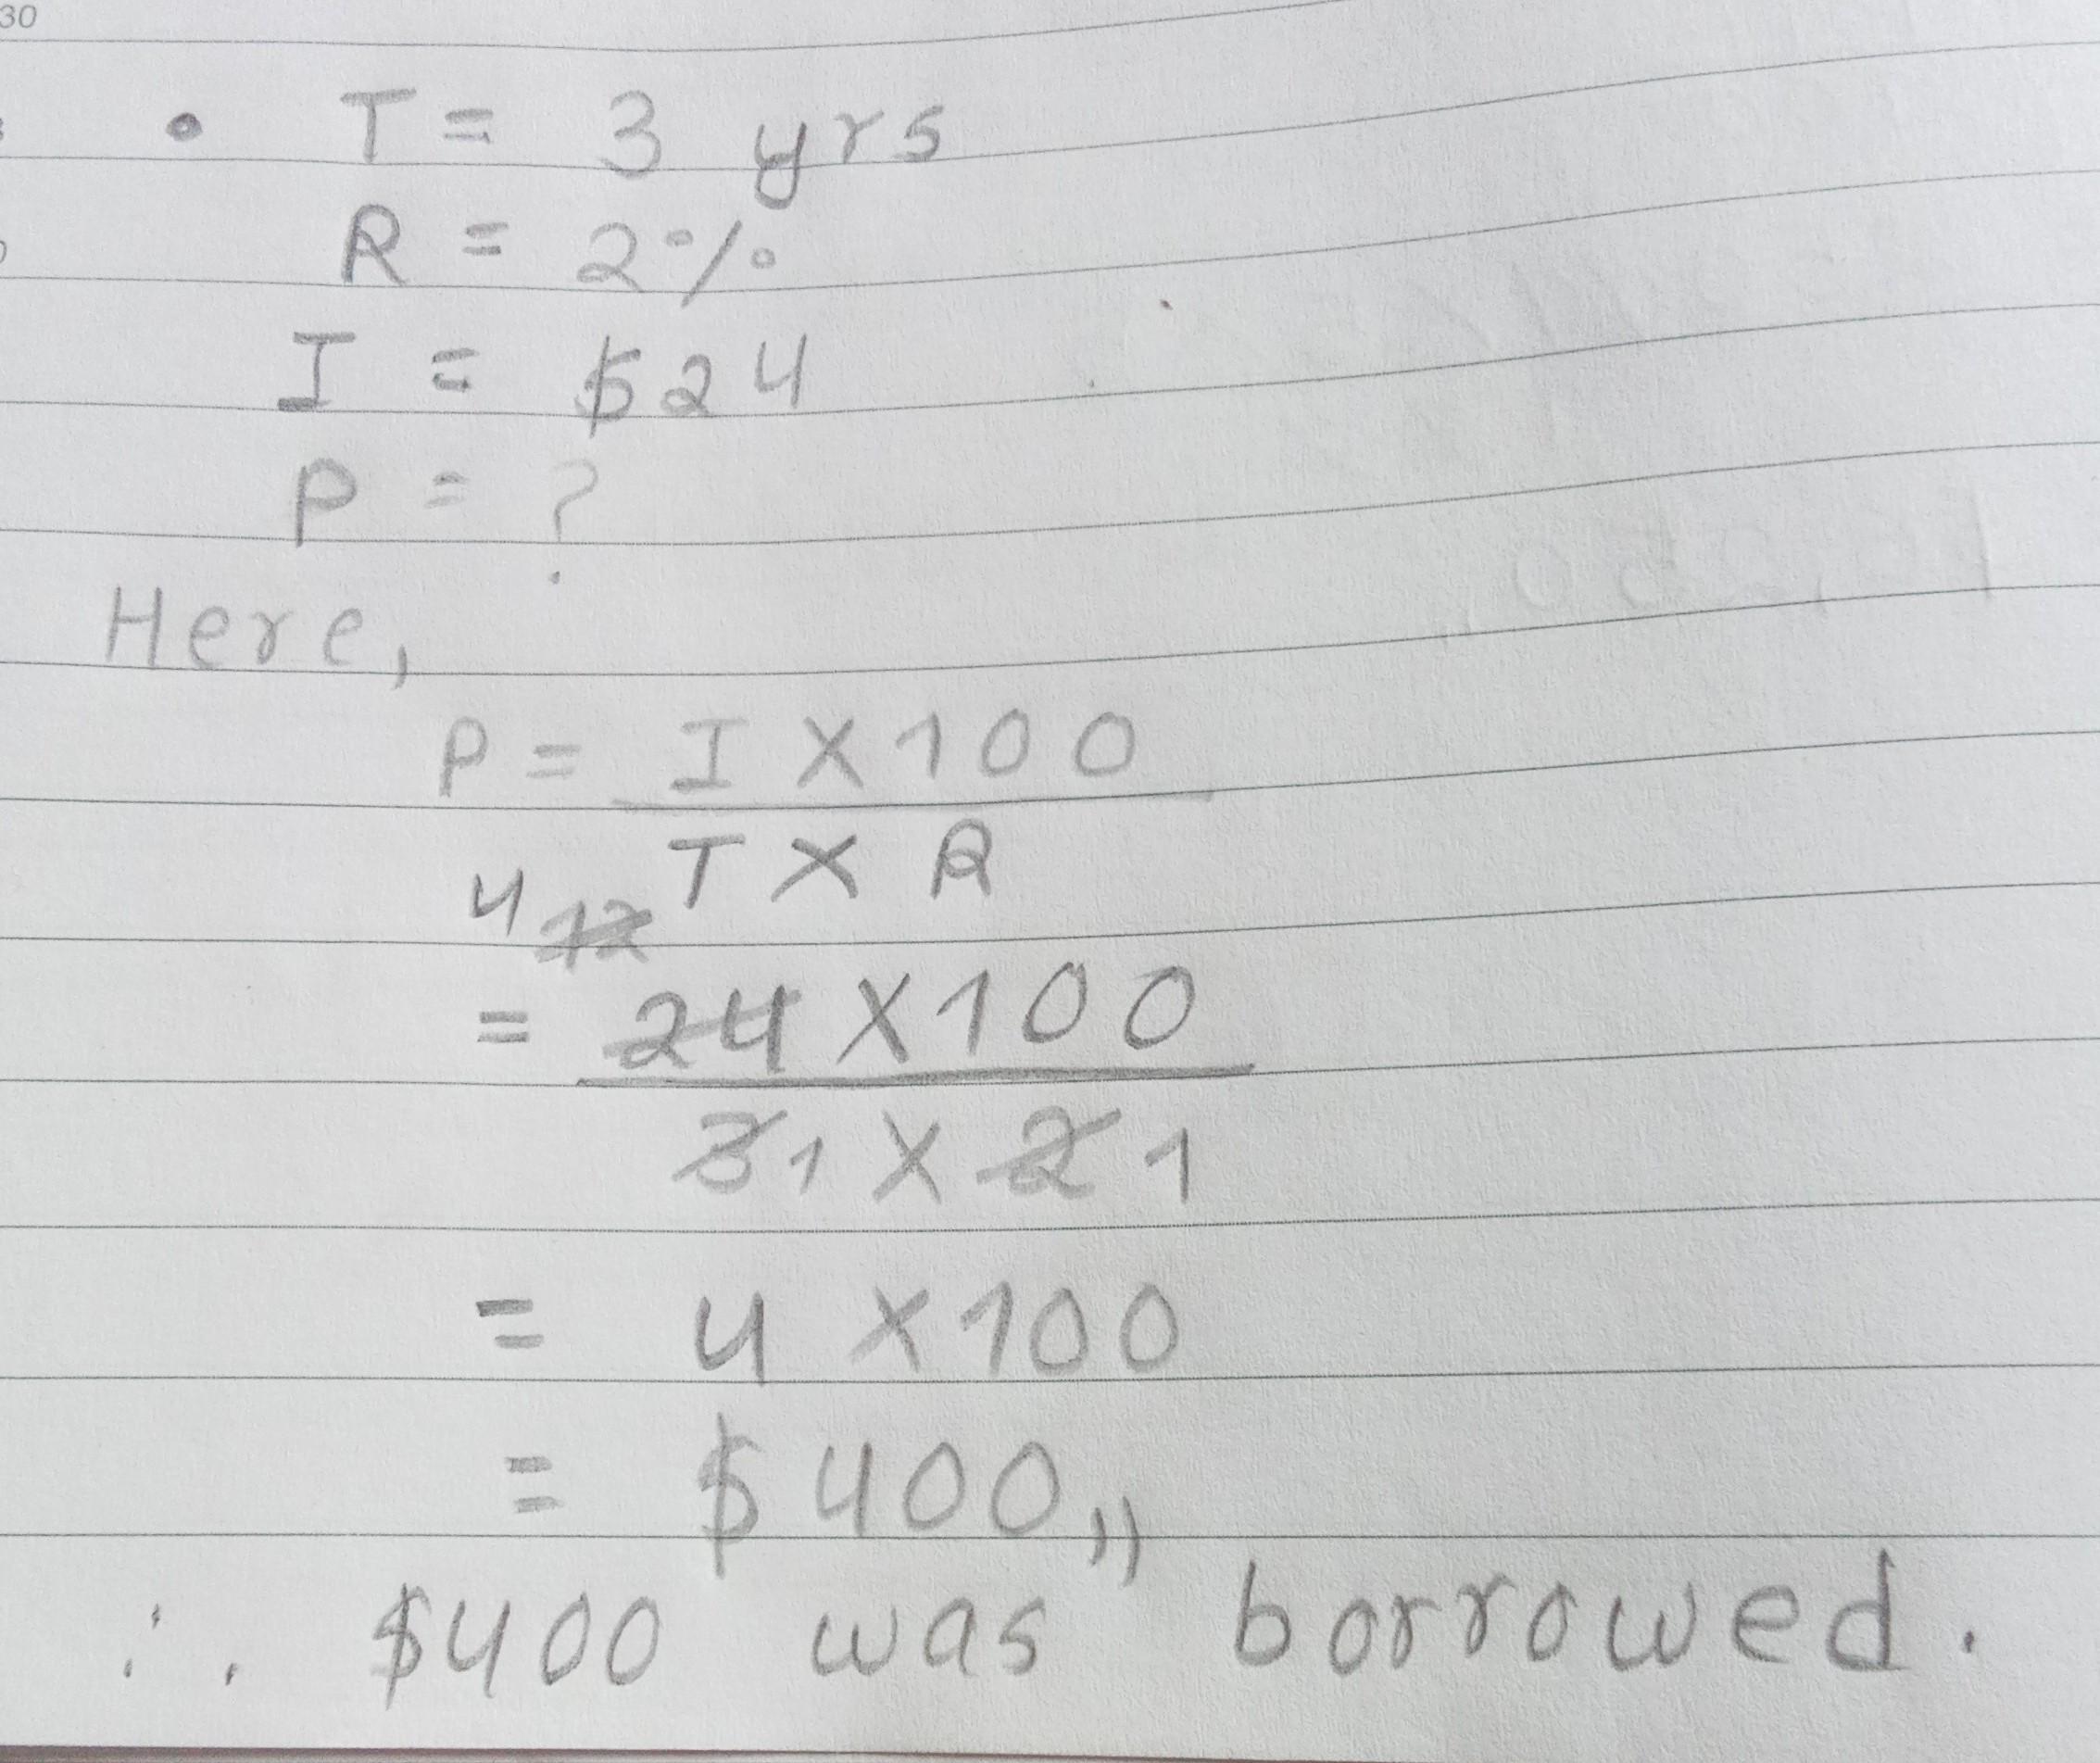 30
• T = 3 yrs
R = 2%
I = $24
P = ?
Here,
P = I X 100
T X R
4 12
= 24 X 100
3 1 X 2 1
= 4 X 100
= $400,,
∴ $400 was borrowed.